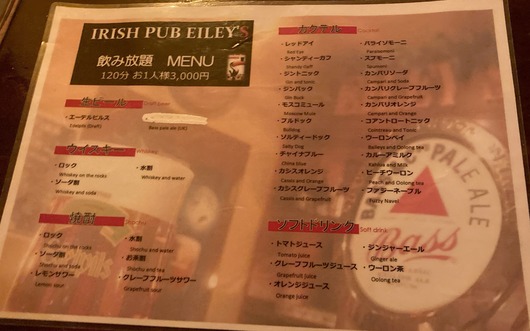 IRISH PUB EILEY'S
飲み放題 MENU
120分 お1人様3,000円
生ビール
・エーデルピルス
Edelpils (Draft)
Bass pale ale (UK)
ウイスキー Whiskey
・ロック
Whiskey on the rocks
・水割
Whiskey and water
・ソーダ割
Whiskey and soda
焼酎
・ロック
Shochu on the rocks
・水割
Shochu and water
・ソーダ割
Shochu and soda
・お茶割
Shochu and tea
・レモンサワー
Lemon sour
・グレープフルーツサワー
Grapefruit sour
カクテル Cocktail
・レッドアイ
Red Eye
・シャンディーガフ
Shandy Gaff
・ジントニック
Gin and tonic
・ジンバック
Gin Buck
・モスコミュール
Moscow Mule
・ブルドック
Bulldog
・ソルティードック
Salty Dog
・チャイナブルー
China blue
・カシスオレンジ
Cassis and Orange
・カシスグレープフルーツ
Cassis and Grapefruit
・パライソモーニ
・スプモーニ
Spumoni
・カンパリソーダ
Campari and Soda
・カンパリグレープフルーツ
Campari and Grapefruit
・カンパリオレンジ
Campari and Orange
・コアントロートニック
Cointreau and Tonic
・ウーロンペイ
・カルーアミルク
Kahlua and Milk
・ピーチウーロン
Peach and Oolong tea
・ファジーネーブル
Fuzzy Navel
ソフトドリンク Soft drink
・トマトジュース
Tomato juice
・グレープフルーツジュース
Grapefruit juice
・オレンジジュース
Orange juice
・ジンジャーエール
Ginger ale
・ウーロン茶
Oolong tea
PALE ALE
Bass